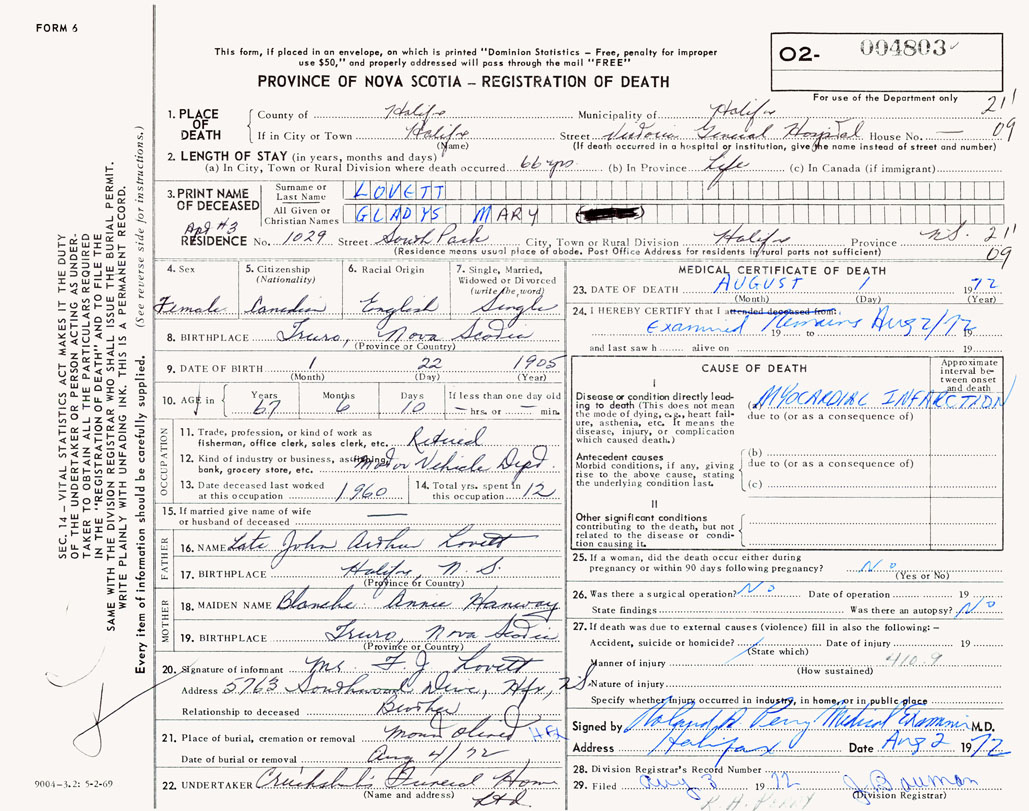 FORM 6
This form, if placed in an envelope, on which is printed "Dominion Statistics – Free, penalty for improper
use $50," and properly addressed will pass through the mail "FREE"
PROVINCE OF NOVA SCOTIA – REGISTRATION OF DEATH
O2- 004803
For use of the Department only
SEC. 14 – VITAL STATISTICS ACT MAKES IT THE DUTY
OF THE UNDERTAKER OR PERSON ACTING AS UNDER-
TAKER TO OBTAIN ALL THE PARTICULARS REQUIRED
IN THE "REGISTRATION OF DEATH" AND TO FILE THE
SAME WITH THE DIVISION REGISTRAR WHO SHALL ISSUE THE BURIAL PERMIT.
WRITE PLAINLY WITH UNFADING INK. THIS IS A PERMANENT RECORD.
Every item of information should be carefully supplied. (See reverse side for instructions.)
1. PLACE OF DEATH
County of Halifx Municipality of Halifx 21
If in City or Town Halifx Street Victoria General Hospital House No. — 09
(Name) (If death occurred in a hospital or institution, give the name instead of street and number)
2. LENGTH OF STAY (in years, months and days)
(a) In City, Town or Rural Division where death occurred 66 yrs. (b) In Province Life (c) In Canada (if immigrant)
3. PRINT NAME OF DECEASED
Surname or Last Name LOVETT
All Given or Christian Names GLADYS MARY
Apt #3
RESIDENCE No. 1029 Street South Park City, Town or Rural Division Halifx Province N.S. 21
(Residence means usual place of abode. Post Office Address for residents in rural parts not sufficient) 09
4. Sex 5. Citizenship (Nationality) 6. Racial Origin 7. Single, Married, Widowed or Divorced (write the word)
Female Canadian English Single
8. BIRTHPLACE Truro, Nova Scotia
(Province or Country)
9. DATE OF BIRTH 1 22 1905
(Month) (Day) (Year)
10. AGE in Years 67 Months 6 Days 10 If less than one day old — hrs. or — min.
OCCUPATION
11. Trade, profession, or kind of work as
fisherman, office clerk, sales clerk, etc. Retired
12. Kind of industry or business, as fishing,
bank, grocery store, etc. Motor Vehicle Dept.
13. Date deceased last worked
at this occupation 1960
14. Total yrs. spent in
this occupation 12
15. If married give name of wife
or husband of deceased —
FATHER
16. NAME Late John Arthur Lovett
17. BIRTHPLACE Halifx, N.S.
(Province or Country)
MOTHER
18. MAIDEN NAME Blanche Annie Hanway
19. BIRTHPLACE Truro, Nova Scotia
(Province or Country)
20. Signature of informant Mr. F J Lovett
Address 5763 Southwood Drive, Hfx, N.S.
Relationship to deceased Brother
21. Place of burial, cremation or removal Mount Olivet Hfx
Date of burial or removal Aug 4/72
22. UNDERTAKER Cruikshank's Funeral Home
(Name and address) Ltd.
9004–3.2: 5-2-69
MEDICAL CERTIFICATE OF DEATH
23. DATE OF DEATH AUGUST 1 1972
(Month) (Day) (Year)
24. I HEREBY CERTIFY that I attended deceased from:
Examined Remains Aug 2/72
19 to 19
and last saw h alive on 19
CAUSE OF DEATH
Approximate interval between onset and death
I
Disease or condition directly lead-
ing to death (This does not mean
the mode of dying, e.g., heart fail-
ure, asthenia, etc. It means the
disease, injury, or complication
which caused death.)
(a) MYOCARDIAL INFARCTION
due to (or as a consequence of)
Antecedent causes
Morbid conditions, if any, giving
rise to the above cause, stating
the underlying condition last.
(b)
due to (or as a consequence of)
(c)
II
Other significant conditions
contributing to the death, but not
related to the disease or condi-
tion causing it.
25. If a woman, did the death occur either during
pregnancy or within 90 days following pregnancy? No
(Yes or No)
26. Was there a surgical operation? No Date of operation 19
State findings Was there an autopsy? No
27. If death was due to external causes (violence) fill in also the following: –
Accident, suicide or homicide? Date of injury 19
(State which)
Manner of injury 410.9
(How sustained)
Nature of injury
Specify whether injury occurred in industry, in home, or in public place
Signed by Roland A Perry Medical Examiner M.D.
Address Halifax Date Aug 2 1972
28. Division Registrar's Record Number
29. Filed Aug 3 1972
(Division Registrar)